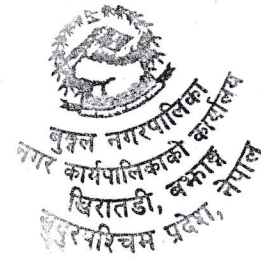 बुङ्गल नगरपालिका
नगर कार्यपालिकाको कार्यालय
खिरातडी, बझाङ
सुदूरपश्चिम प्रदेश, नेपाल